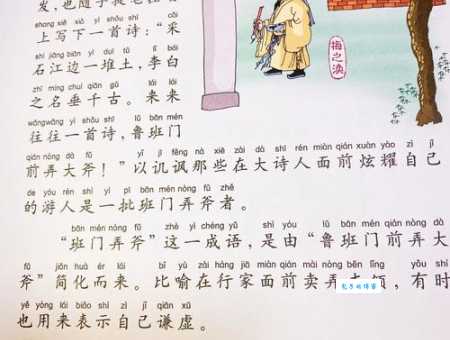 发，也随手提笔在
shang xiě xià yì shǒu shī cǎi
上写下一首诗：“采
shí jiāng biān yì duī tǔ lǐ bái
石江边一堆土，李白
zhī míng chuí qiān gǔ lái lái
之名垂千古。来来
wǎngwǎng yì shǒu shī lǔ bān mén
往往一首诗，鲁班门
qián nòng dà fǔ yǐ jī fěng nà xiē zài dà shī rén miàn qián xuàn yào zì jǐ
前弄大斧！”以讥讽那些在大诗人面前炫耀自己
de yóu rén shì yì pī bān mén nòng fǔ zhě
的游人是一批班门弄斧者。
bān mén nòng fǔ zhè yì chéng yǔ shì yóu lǔ bān mén qián nòng dà
“班门弄斧”这一成语，是由“鲁班门前弄大
fǔ jiǎn huà ér lái bǐ yù zài háng jiā miàn qián mài nòng běn lǐng yǒu shí
斧”简化而来。比喻在行家面前卖弄本领，有时
yě yòng lái biǎo shì zì jǐ qiān xū
也用来表示自己谦虚。
梅之涣